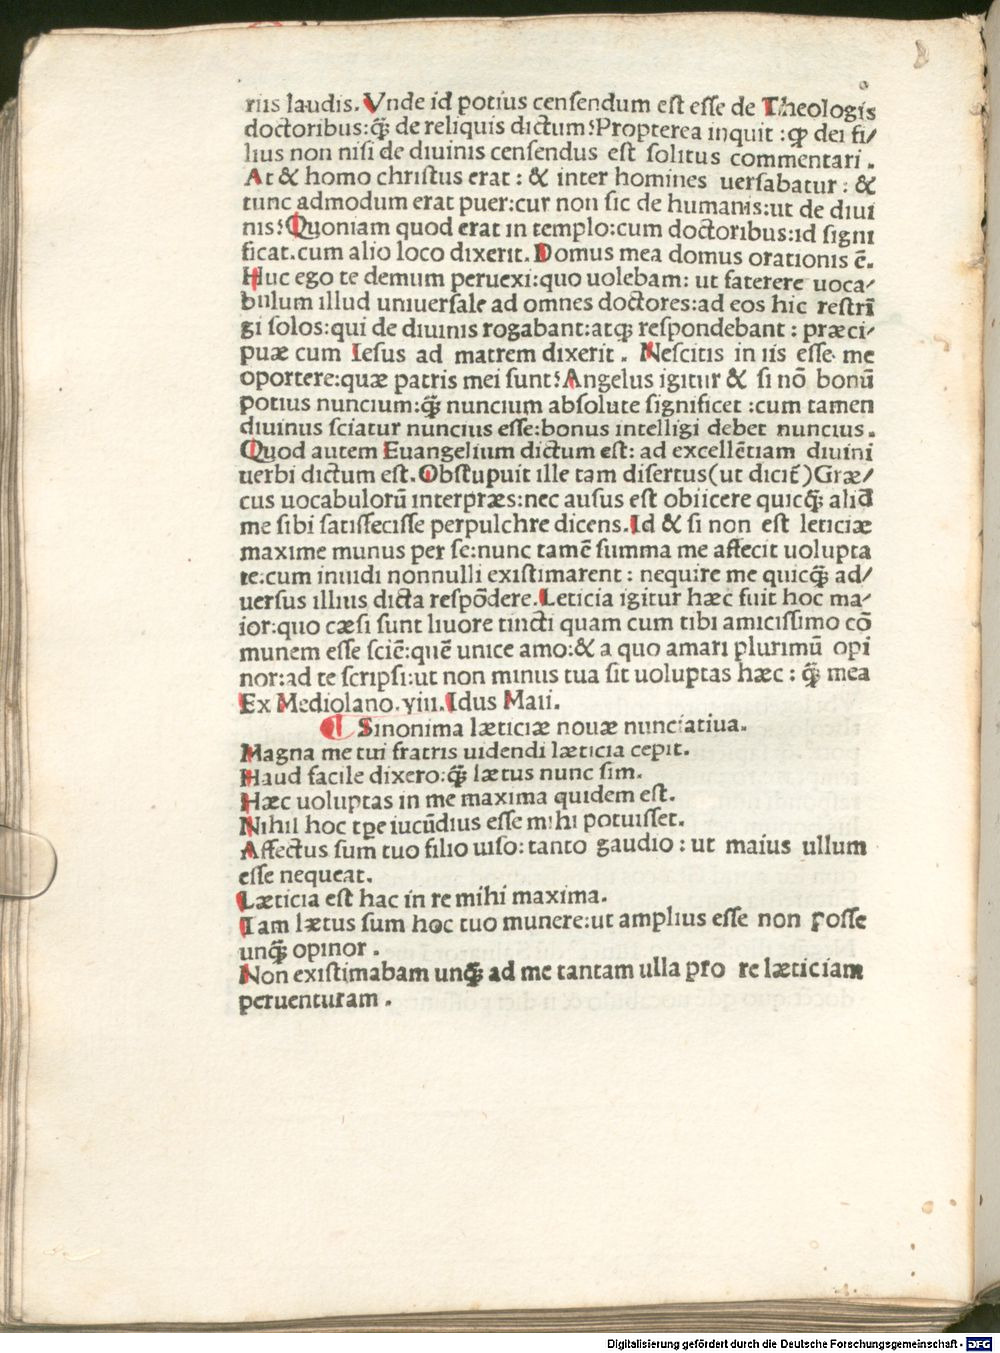 riis laudis. Vnde id potius censendum est esse de Theologis
doctoribus:q̃ȝ de reliquis dictum? Propterea inquit : ꝙ dei fi/
lius non nisi de diuinis censendus est solitus commentari .
At & homo christus erat : & inter homines uersabatur : &
tunc admodum erat puer:cur non sic de humanis:ut de diui
nis? Quoniam quod erat in templo:cum doctoribus:id signi
ficat.cum alio loco dixerit. Domus mea domus orationis ē.
Huc ego te demum peruexi:quo uolebam: ut faterere uoca/
bulum illud uniuersale ad omnes doctores:ad eos hic restrī
gi solos:qui de diuinis rogabant:atqȝ respondebant : præci/
puæ cum Iesus ad matrem dixerit . Nescitis in iis esse me
oportere:quæ patris mei sunt? Angelus igitur & si nō bonū
potius nuncium:q̃ȝ nuncium absolute significet :cum tamen
diuinus sciatur nuncius esse:bonus intelligi debet nuncius.
Quod autem Euangelium dictum est: ad excellētiam diuini
uerbi dictum est. Obstupuit ille tam disertus(ut dicit̃)Græ/
cus uocabulorū interpræs:nec ausus est obiicere quicq̃ȝ aliđ
me sibi satisfecisse perpulchre dicens. Id & si non est leticiæ
maxime munus per se:nunc tamē summa me affecit uolupta
te:cum inuidi nonnulli existimarent : nequire me quicq̃ȝ ad/
uersus illius dicta respōdere. Leticia igitur hæc fuit hoc ma/
ior:quo cæsi sunt liuore tincti quam cum tibi amicissimo cō
munem esse sciē:quē unice amo:& a quo amari plurimū opi
nor:ad te scripsi:ut non minus tua sit uoluptas hæc : q̃ȝ mea
Ex Mediolano. yiii. Idus Maii.
¶ Sinonima læticiæ nouæ nunciatiua.
Magna me tui fratris uidendi læticia cepit.
Haud facile dixero:q̃ȝ lætus nunc sim.
Hæc uoluptas in me maxima quidem est.
Nihil hoc tꝑe iucūdius esse mihi potuisset.
Affectus sum tuo filio uiso: tanto gaudio : ut maius ullum
esse nequeat.
Læticia est hac in re mihi maxima.
Tam lætus sum hoc tuo munere:ut amplius esse non posse
unq̃ȝ opinor .
Non existimabam unq̃ȝ ad me tantam ulla pro re læticiam
peruenturam .
Digitalisierung gefördert durch die Deutsche Forschungsgemeinschaft - DFG